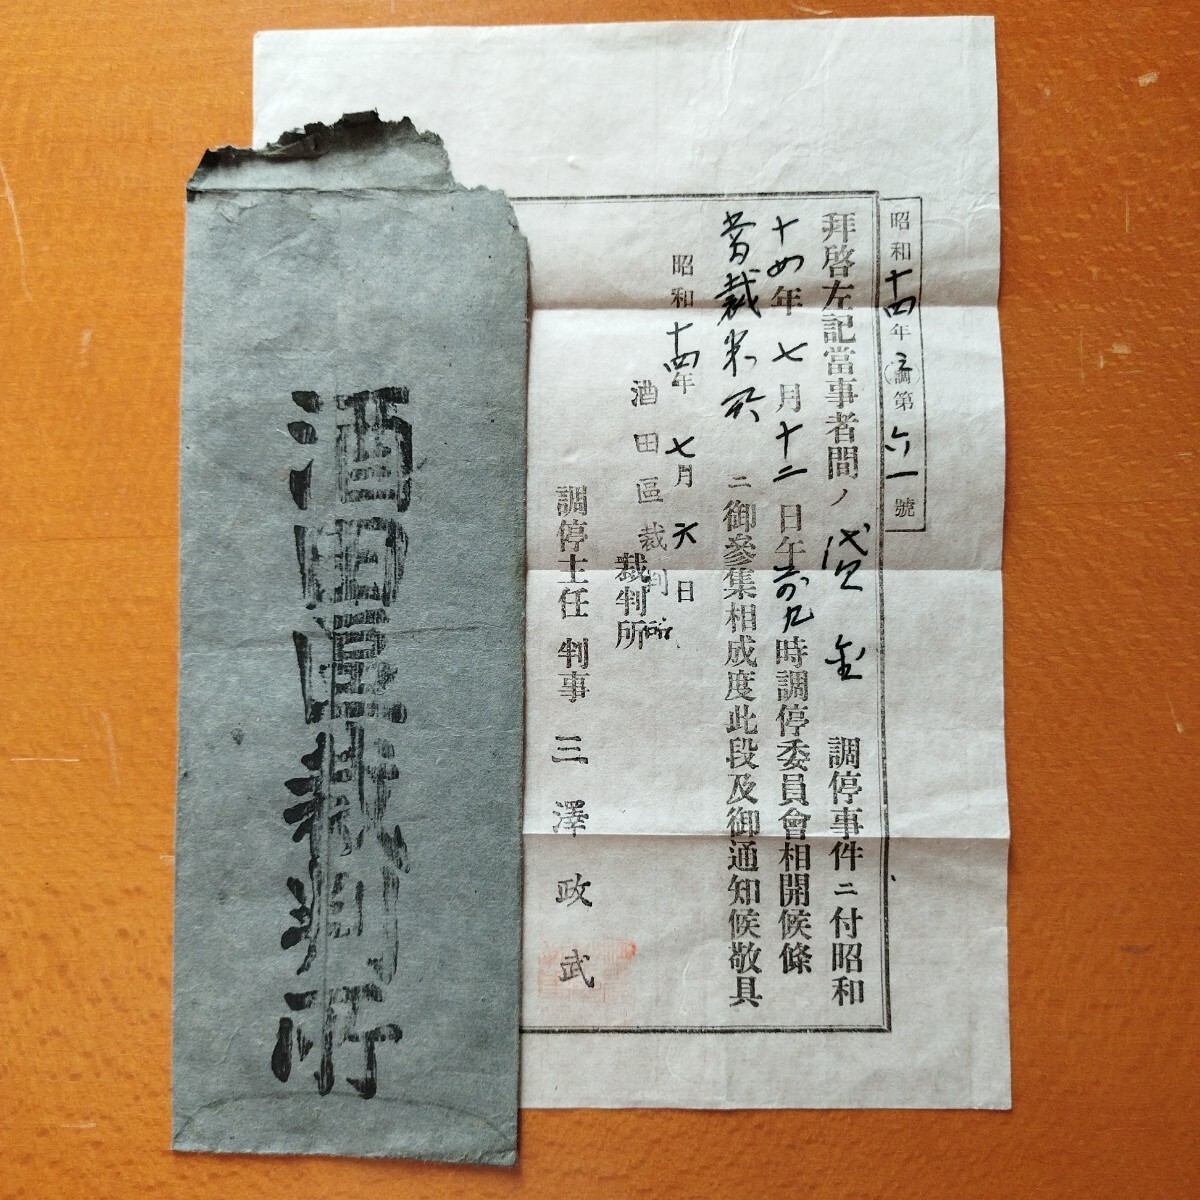 昭和十四年(調)第六一號
拜啓左記當事者間ノ貸金調停事件ニ付昭和
十四年七月十二日午前九時調停委員會相開候條
當裁判所ニ御參集相成度此段及御通知候敬具
昭和十四年七月六日
酒田區裁判所
裁判所
調停主任判事三澤政武
酒田區裁判所